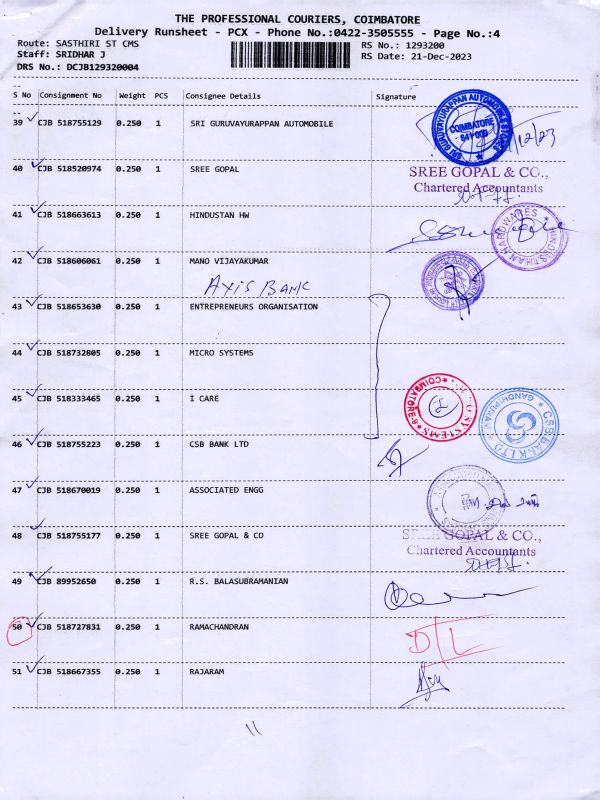 THE PROFESSIONAL COURIERS, COIMBATORE
Delivery Runsheet - PCX - Phone No.:0422-3505555 - Page No.:4
Route: SASTHIRI ST CMS
Staff: SRIDHAR J
DRS No.: DCJB129320004
RS No.: 1293200
RS Date: 21-Dec-2023
S No Consignment No Weight PCS Consignee Details Signature
39 CJB 518755129 0.250 1 SRI GURUVAYURAPPAN AUTOMOBILE
SRI GURUVAYURAPPAN AUTOMOBILES STORES
COIMBATORE
641 009
40 CJB 518520974 0.250 1 SREE GOPAL
SREE GOPAL & CO.,
Chartered Accountants
41 CJB 518663613 0.250 1 HINDUSTAN HW
HINDUSTHAN HARDWARES
42 CJB 518606061 0.250 1 MANO VIJAYAKUMAR
AXIS BANK
43 CJB 518653630 0.250 1 ENTREPRENEURS ORGANISATION
44 CJB 518732805 0.250 1 MICRO SYSTEMS
45 CJB 518333465 0.250 1 I CARE
COIMBATORE-9 SYSTEMS
CSB BANK LTD GANDHIPURAM
46 CJB 518755223 0.250 1 CSB BANK LTD
47 CJB 518670019 0.250 1 ASSOCIATED ENGG
48 CJB 518755177 0.250 1 SREE GOPAL & CO
SREE GOPAL & CO.,
Chartered Accountants
49 CJB 89952650 0.250 1 R.S. BALASUBRAMANIAN
50 CJB 518727831 0.250 1 RAMACHANDRAN
D/L
51 CJB 518667355 0.250 1 RAJARAM